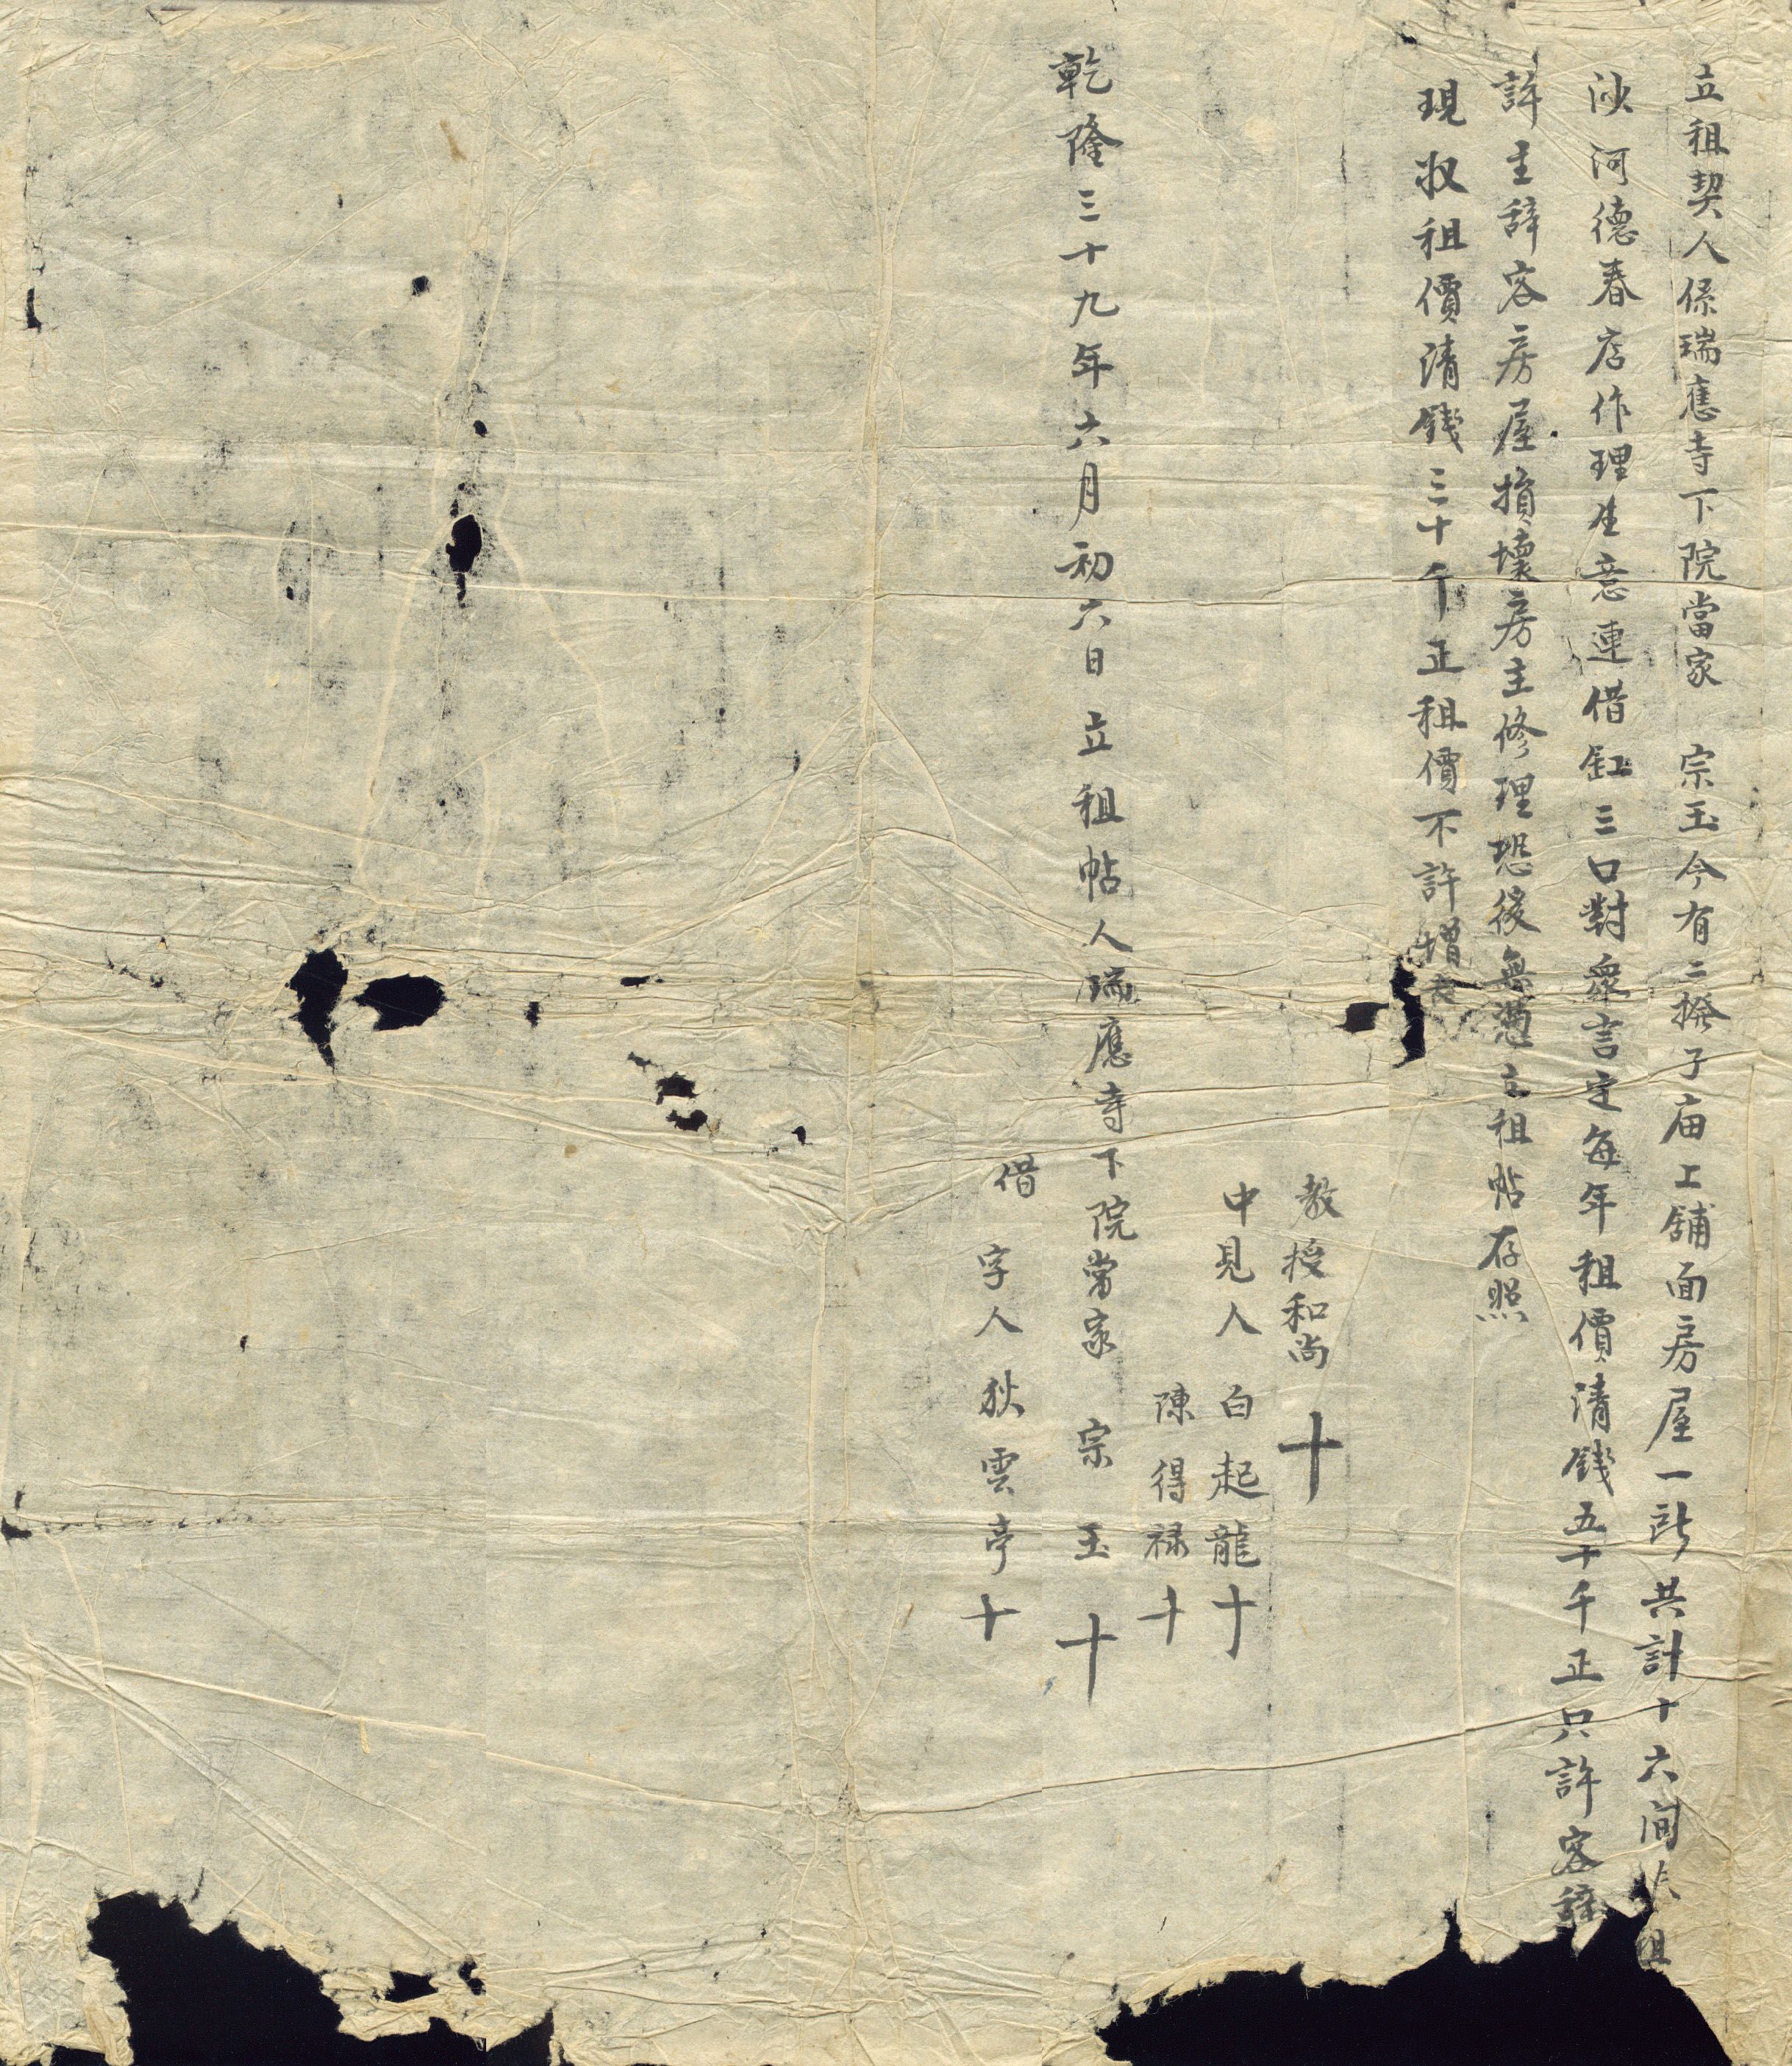 立租契人係瑞應寺下院當家　宗玉今有二撥子庙工舖面房屋一所共計十六间 租
沙河德春店作理生意連借缸三口對衆言定每年租價清錢五十千正只許客辞
許主辞客房屋損壞房主修理恐後無憑立租帖存照
現收租價清錢三十千正租價不許增
教授和尚　十
中見人　白起龍　十
陳得禄　十
乾隆三十九年六月初六日　立租帖人瑞應寺下院當家　宗玉　十
借　字人　狄雲亭　十